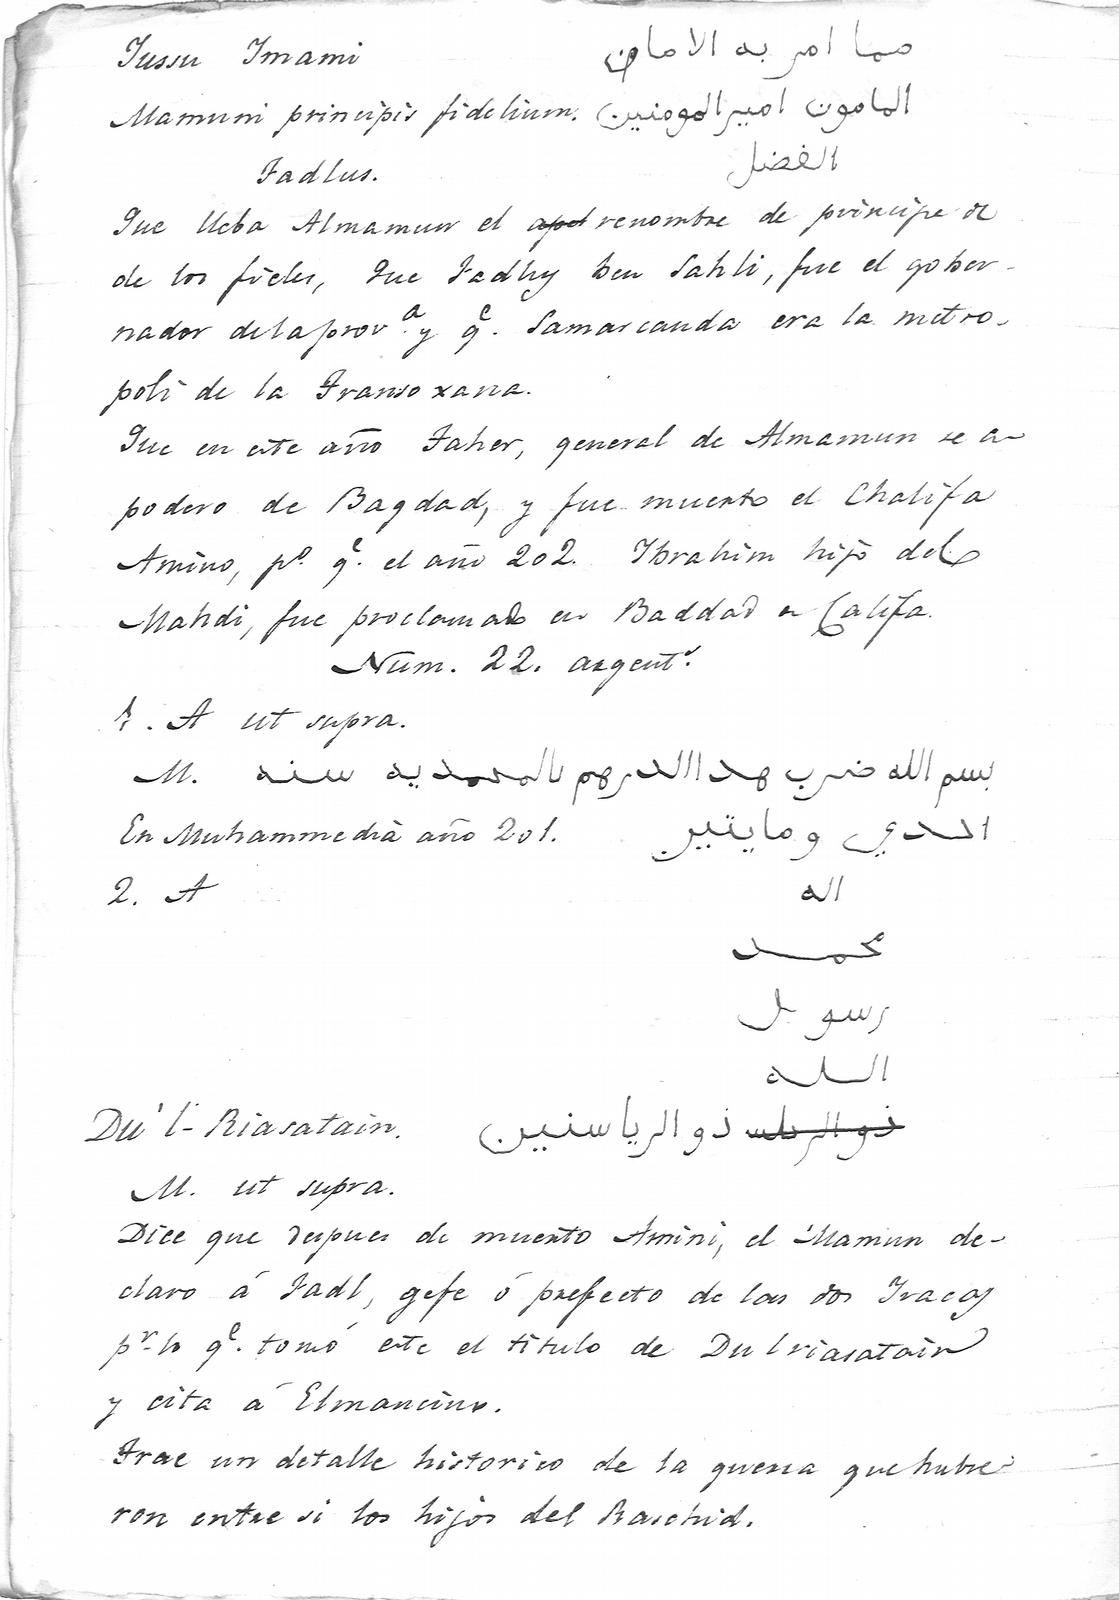 Jussu Imami مما امر به الامان
Mamuni principis fidelium. المامون امير المومنين
Fadlus. الفضل
Que lleba Almamun el apel renombre de principe de
de los fieles, Que Fadhy ben Sahli, fue el gober-
nador de la prov.a y q.e Samarcanda era la metro-
poli de la Transoxana.
Que en este año Taher, general de Almamun se a-
podero de Bagdad, y fue muerto el Chalifa
Amino, p.o q.e el año 202. Ibrahim hijo del
Mahdi, fue proclamado en Baddad Califa.
Num. 22. argent.
1. A ut supra.
M. بسم الله ضرب هدا الدرهم بالمحمديه سنه
En Muhammedia año 201. احدي ومايتين
2. A الله
محمد
رسول
الله
Du'l-Riasatain. ذو الرياس ذو الرياستين
M. ut supra.
Dice que despues de muerto Amini, el Mamun de-
claro á Fadl, gefe ó prefecto de las dos Iracas
p.r lo q.e tomó este el titulo de Dulriasatain
y cita á Elmancino.
Trae un detalle historico de la guerra que hubie-
ron entre si los hijos del Raschid.